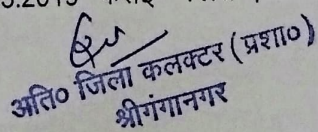 .2015
अति० जिला कलक्टर (प्रशा०)
श्रीगंगानगर